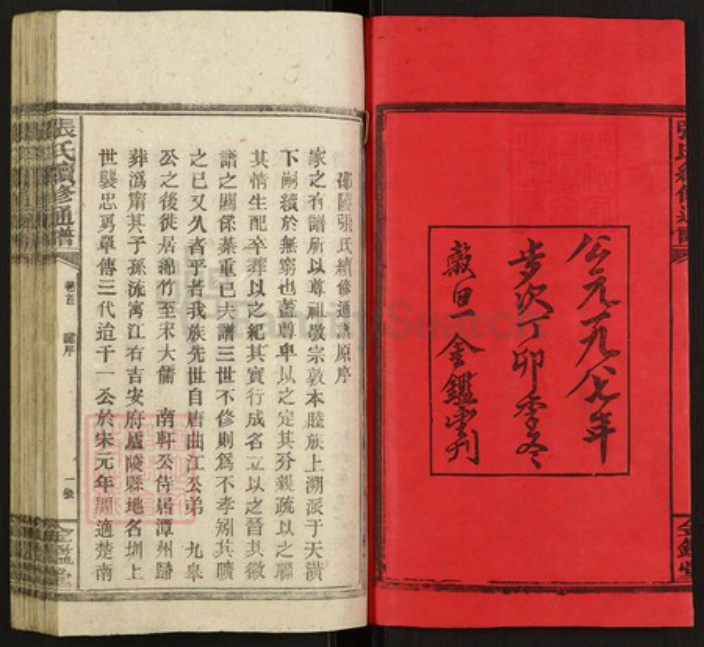 公元一九八七年
歩次丁卯季冬
穀旦金鑑堂刊
張氏續修通譜
金鑑堂
邵陵張氏續修通譜原序
家之有譜所以尊祖敬宗敦本睦族上溯派于天潢
下嗣續於無窮也蓋尊卑以之定其分親疏以之聯
其情生配卒葬以之紀其實行成名立以之晉其徽
譜之關係綦重已夫譜三世不修則為不孝矧其曠
之已又久者乎若我族先世自唐曲江公弟 九皋
公之後徙居綿竹至宋大儒 南軒公侍居潭州歸
葬溈甯其子孫流寓江右吉安府廬陵縣地名圳上
世襲忠勇單傳三代迨千一公於宋元年間適楚南
張氏續修通譜
卷首
譜序
一張
金鑑堂
FamilySearch